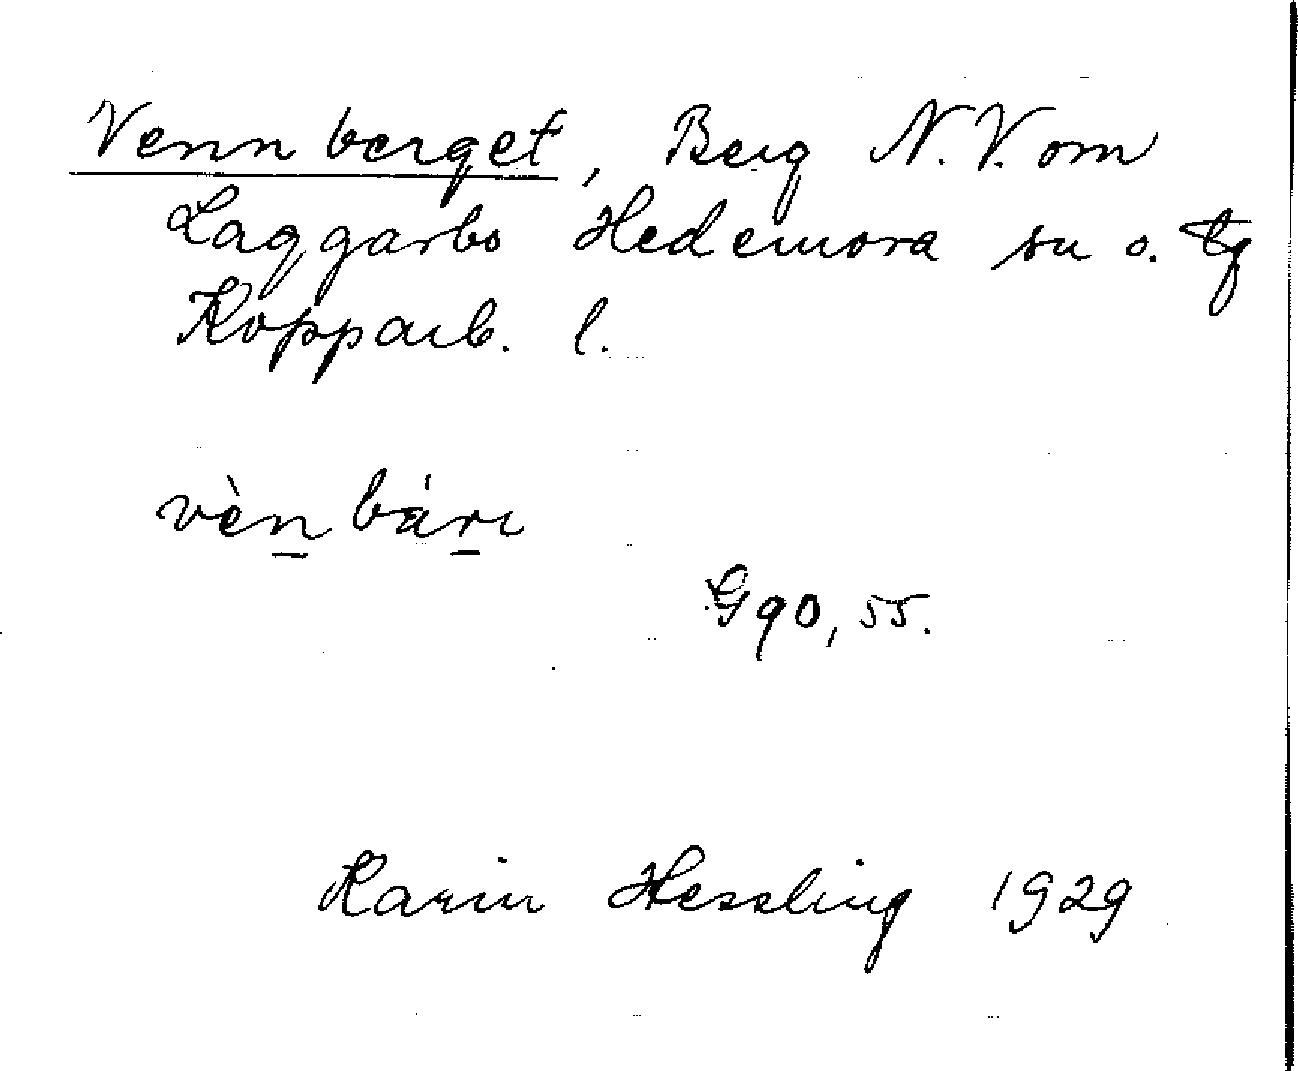 Vennberget, Berg N.V. om
Laggarbo Hedemora sn o. tg
Kopparb. l.
vèn bárɩ
G 90, 55.
Karin Hessling 1929